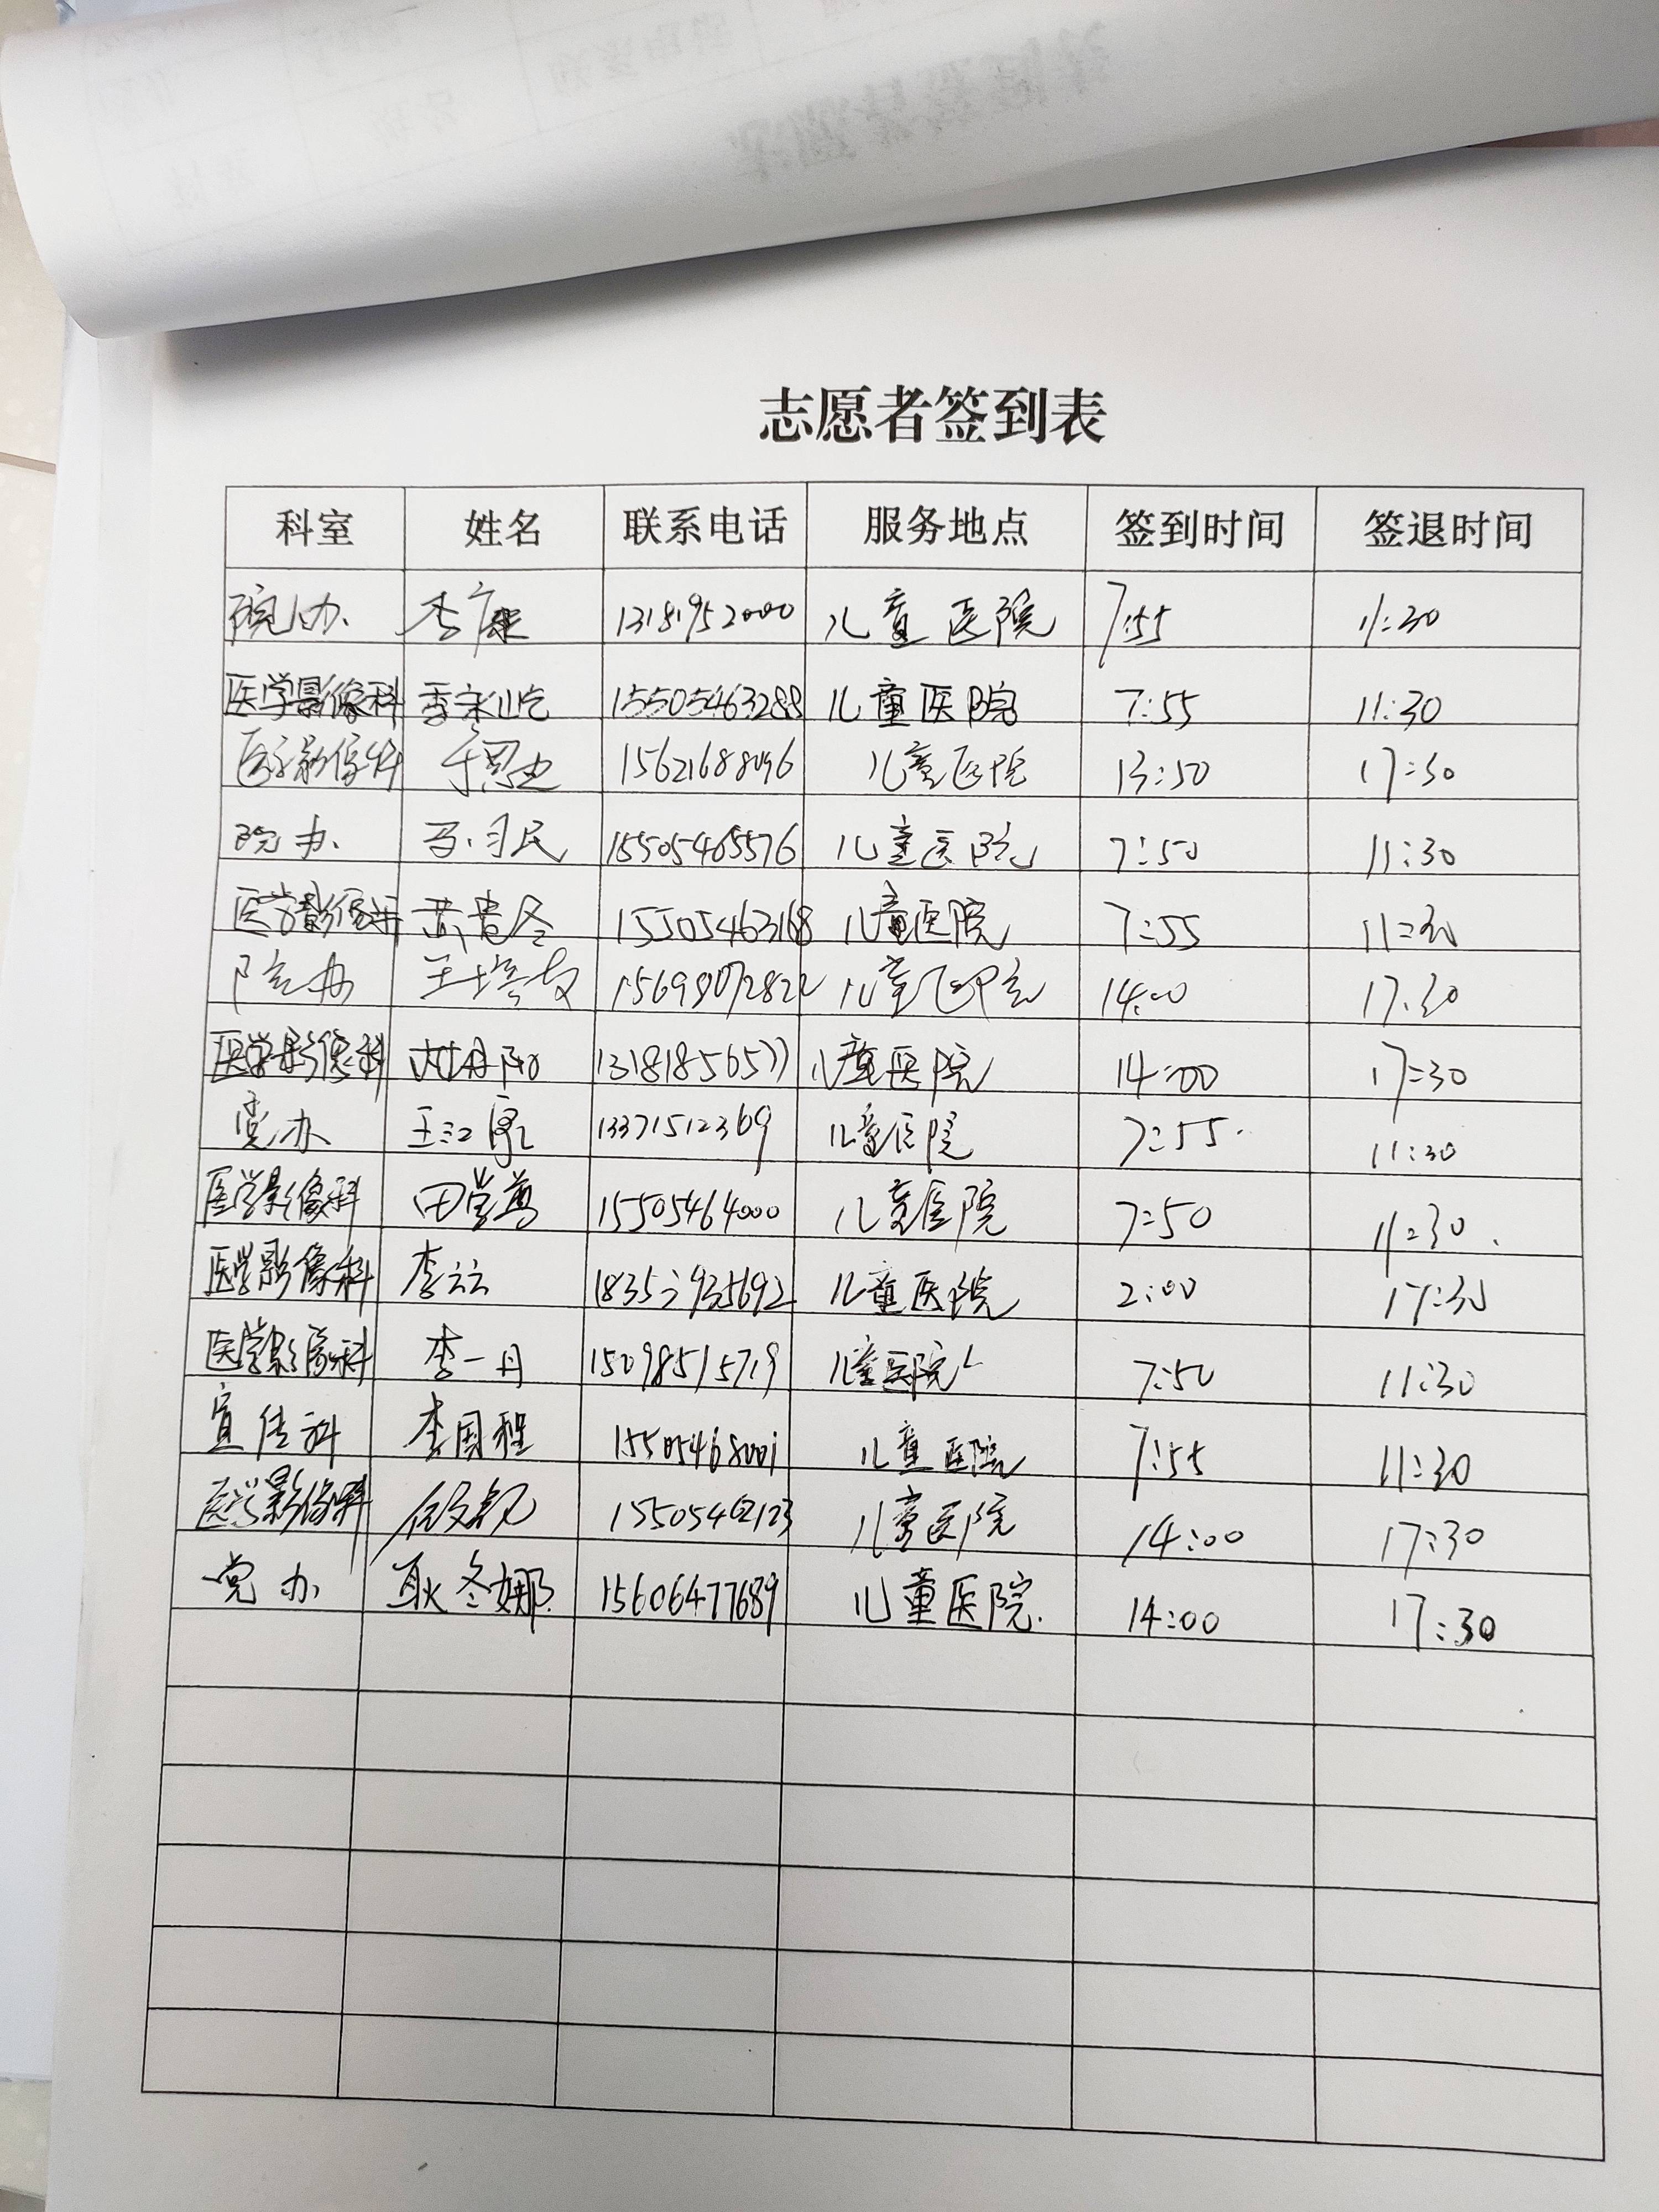 志愿者签到表
科室 姓名 联系电话 服务地点 签到时间 签退时间
院办 李康 13181952000 儿童医院 7:55 11:30
医学影像科 季永屹 15505463288 儿童医院 7:55 11:30
医学影像科 15621688096 儿童医院 13:50 17:30
院办 15505465576 儿童医院 7:50 11:30
医学影像科 15505463168 儿童医院 7:55 11:30
院办 15699072822 儿童医院 14:00 17:30
医学影像科 13181856577 儿童医院 14:00 17:30
党办 13371512369 儿童医院 7:55 11:30
医学影像科 15505464000 儿童医院 7:50 11:30
医学影像科 李云 儿童医院 2:00 17:30
医学影像科 李一丹 15098515719 儿童医院 7:50 11:30
宣传科 李国程 15505468001 儿童医院 7:55 11:30
医学影像科 15505462123 儿童医院 14:00 17:30
党办 耿冬娜 15606477689 儿童医院 14:00 17:30